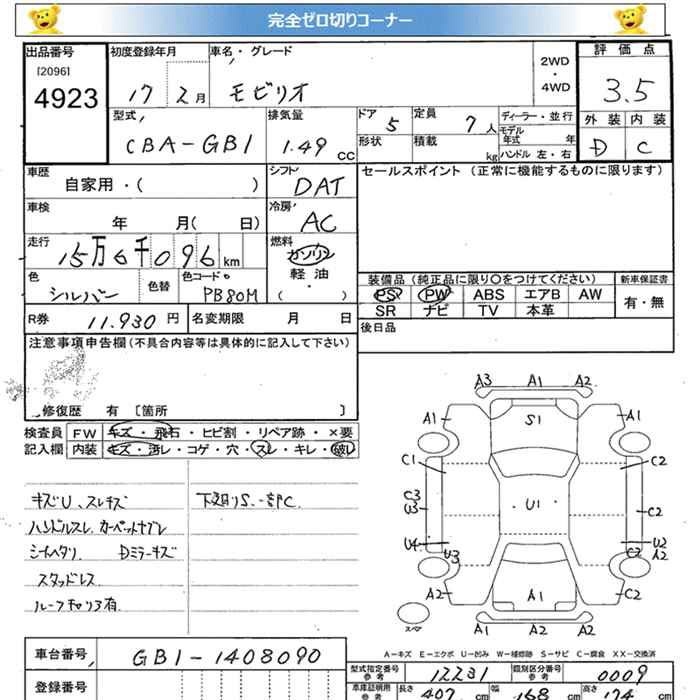 完全ゼロ切りコーナー
出品番号 初度登録年月 車名・グレード 2WD・4WD 評価点
[2096]
4923 17 2月 モビリオ 3.5
型式 排気量 ドア 5 定員 7人 ディーラー・並行 外装 内装
CBA-GB1 1.49 CC 形状 積載 kg モデル年式 年 ハンドル 左・右 D C
車歴 シフト セールスポイント (正常に機能するものに限ります)
自家用・( ) DAT
車検 冷房
年 月( 日) AC
走行 燃料
15万6千096km ガソリン
軽油・( )
色 色替 色コード 装備品 (純正品に限り○をつけてください) 新車保証書
シルバー PB80M PS PW ABS エアB AW 有・無
SR ナビ TV 本革
R券 11.930 円 名変期限 月 日 後日品
注意事項申告欄(不具合内容等は具体的に記入して下さい)
修復歴 有 [箇所 ]
検査員 FW キズ・飛石・ヒビ割・リペア跡・×要
記入欄 内装 キズ・汚レ・コゲ・穴・スレ・キレ・破レ
キズU、スレキズ 下廻りS.一部C.
ハンドルスレ カーペットヤブレ
シートヘタリ Dミラーキズ
スタッドレス
ルーフキャリア有
A3 A1 A2
A1 S1 A1
C1 C2
C3 U3 U1 C2
U4 U3 U2 C2 A2
A2 A1 C2
スペア
A1 A2 A2
A-キズ E-エクボ U-凹み W-補修跡 S-サビ C-腐食 XX-交換済
車台番号 GB1-1408090 型式指定番号 参考 12231 類別区分番号 参考 0009
登録番号 車庫証明用 参考 長さ 407 cm 幅 168 cm 高さ 174 cm